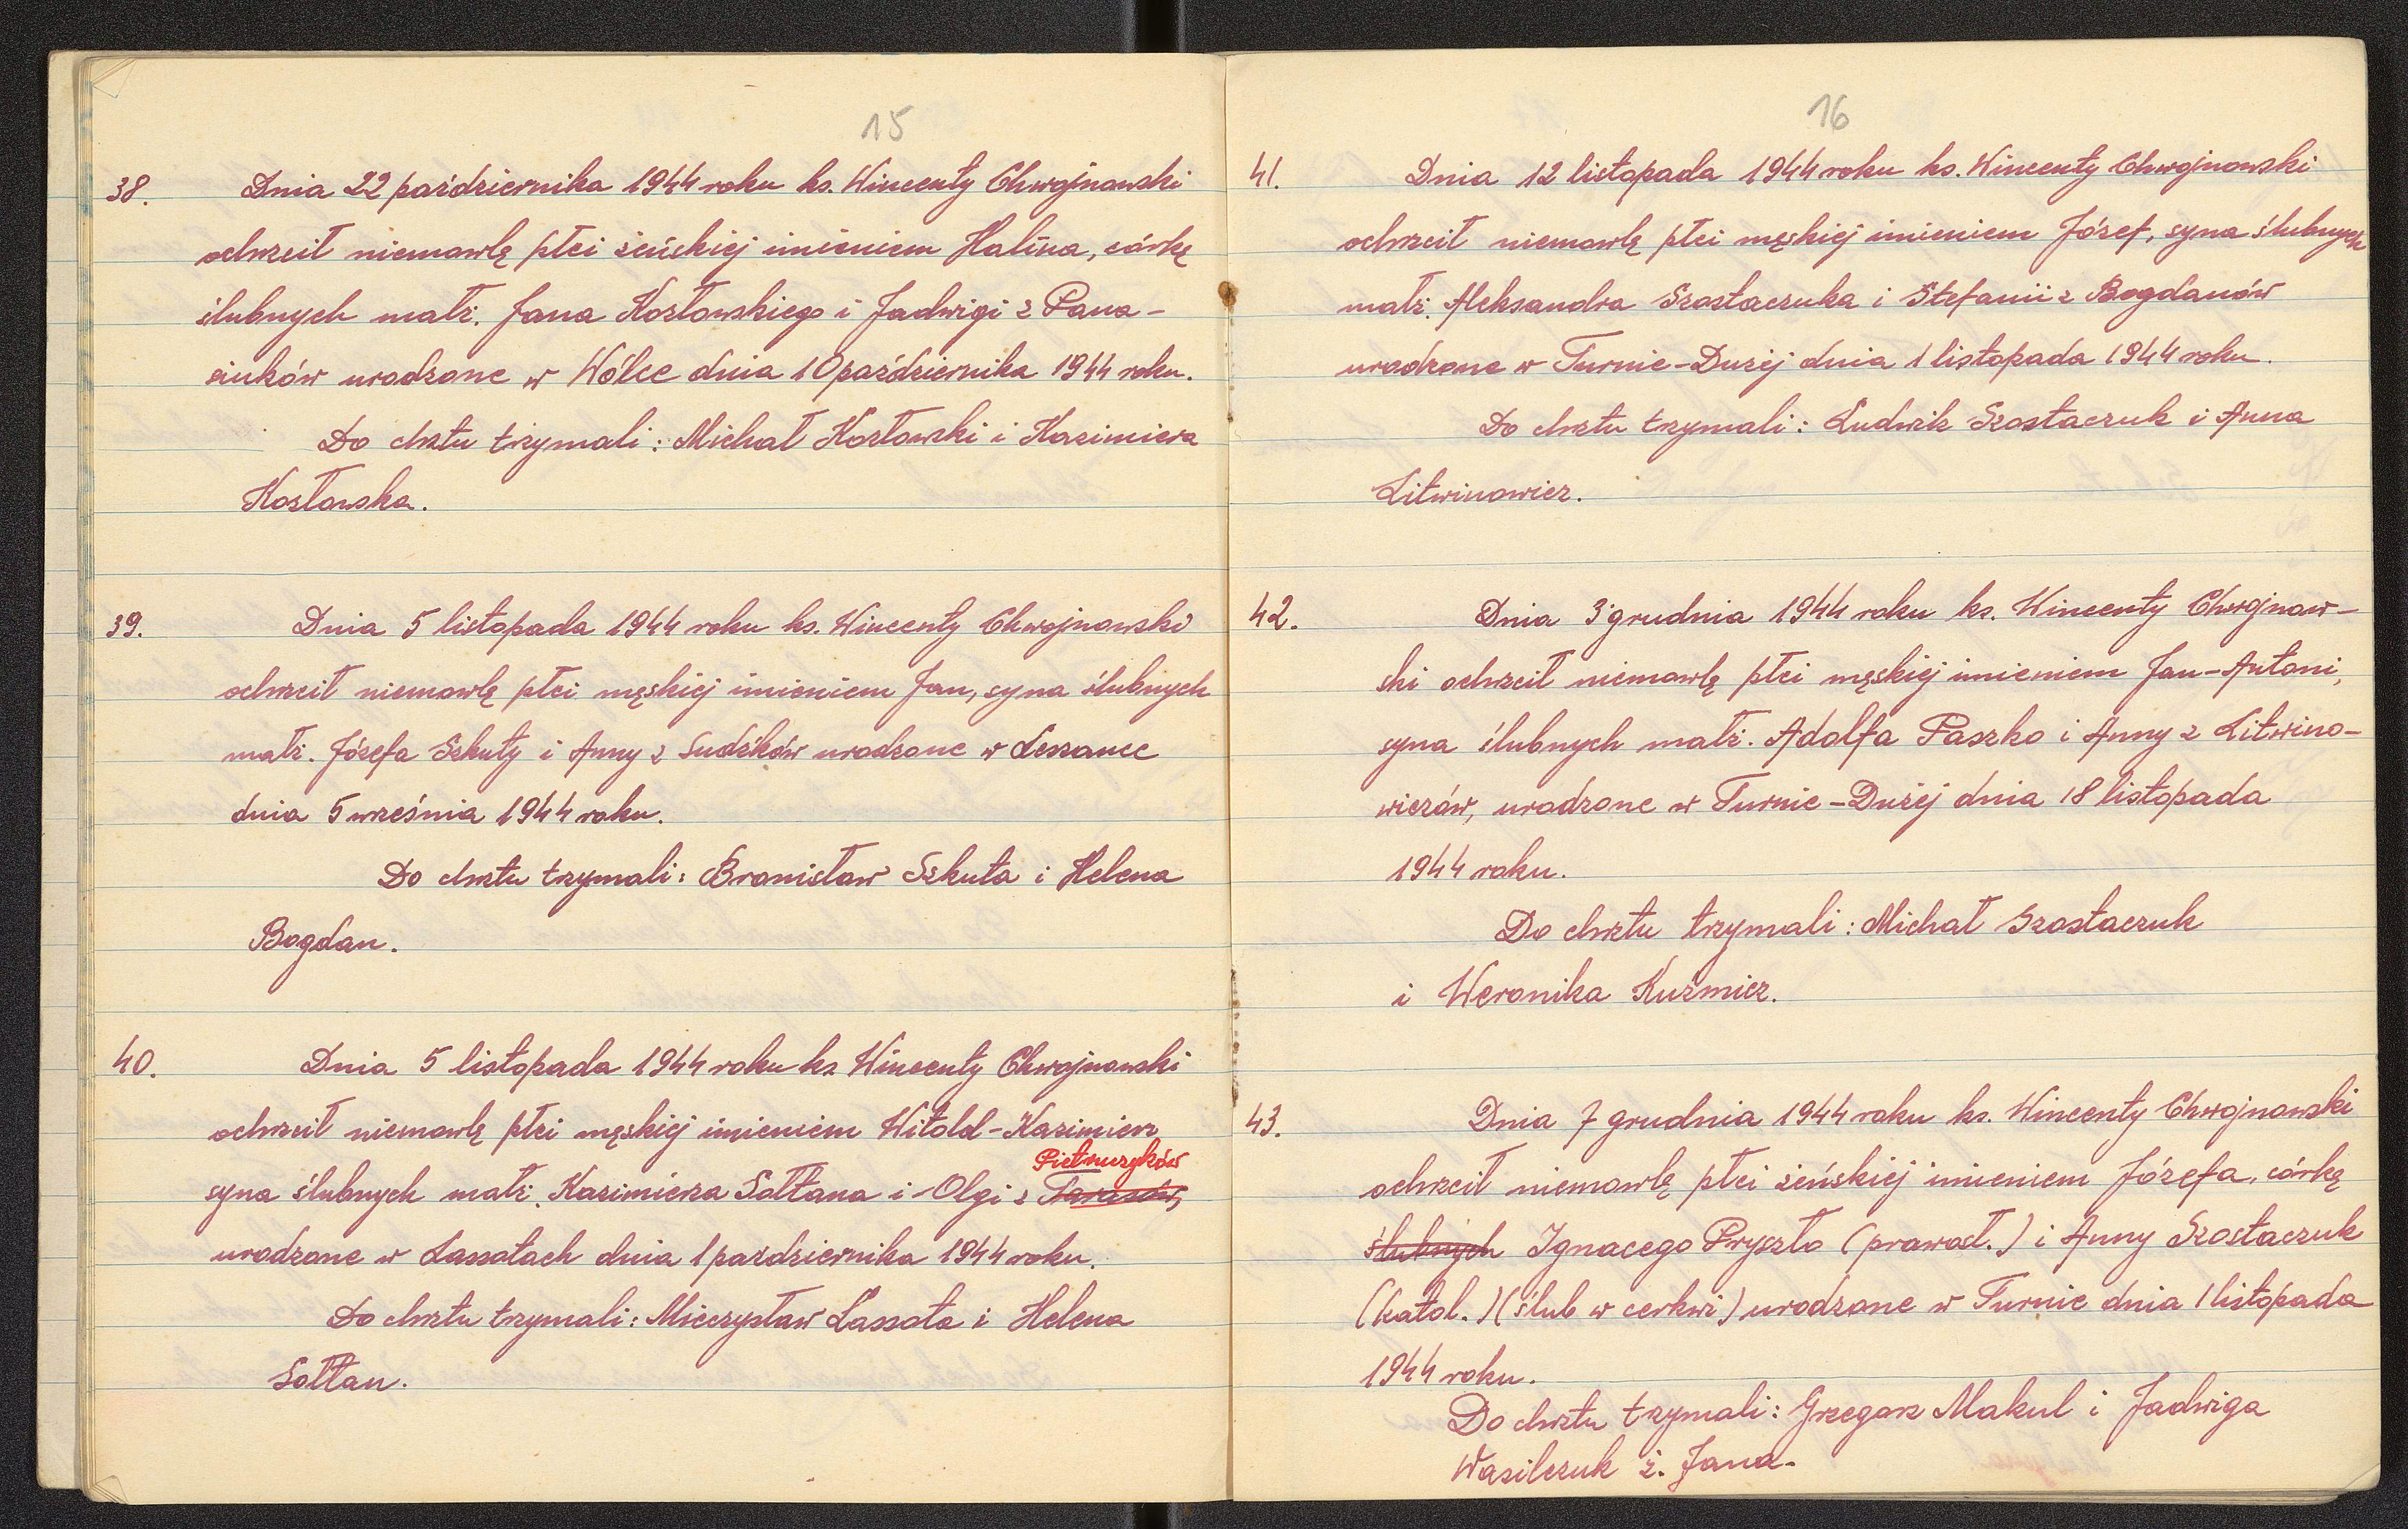 15
38. Dnia 22 października 1944 roku ks. Wincenty Chwojnowski
ochrzcił niemowlę płci żeńskiej imieniem Halina, córkę
ślubnych małż. Jana Kozłowskiego i Jadwigi z Pana-
siuków urodzone w Wólce dnia 10 października 1944 roku.
Do chrztu trzymali: Michał Kozłowski i Kazimiera
Kozłowska.
39. Dnia 5 listopada 1944 roku ks. Wincenty Chwojnowski
ochrzcił niemowlę płci męskiej imieniem Jan, syna ślubnych
małż. Józefa Szkuty i Anny z Sudźków urodzone w Leszance
dnia 5 września 1944 roku.
Do chrztu trzymali: Bronisław Szkuta i Helena
Bogdan.
40. Dnia 5 listopada 1944 roku ks Wincenty Chwojnowski
ochrzcił niemowlę płci męskiej imieniem Witold-Kazimierz
Pietruczyków
syna ślubnych małż. Kazimierza Sołtana i Olgi z
urodzone w Lassotach dnia 1 października 1944 roku.
Do chrztu trzymali: Mieczysław Lassota i Helena
Sołtan.
16
41. Dnia 12 listopada 1944 roku ks. Wincenty Chwojnowski
ochrzcił niemowlę płci męskiej imieniem Józef, syna ślubnych
małż. Aleksandra Szostaczuka i Stefanii z Bogdanów
urodzone w Turnie-Dużej dnia 1 listopada 1944 roku.
Do chrztu trzymali: Ludwik Szostaczuk i Anna
Litwinowicz.
42. Dnia 3 grudnia 1944 roku ks. Wincenty Chwojnow-
ski ochrzcił niemowlę płci męskiej imieniem Jan-Antoni,
syna ślubnych małż. Adolfa Paszko i Anny z Litwino-
wiczów, urodzone w Turnie-Dużej dnia 18 listopada
1944 roku.
Do chrztu trzymali: Michał Szostaczuk
i Weronika Kuźmicz.
43. Dnia 7 grudnia 1944 roku ks. Wincenty Chwojnowski
ochrzcił niemowlę płci żeńskiej imieniem Józefa, córkę
ślubnych Ignacego Pryszło (prawosł.) i Anny Szostaczuk
(katol.) (ślub w cerkwi) urodzone w Turnie dnia 1 listopada
1944 roku.
Do chrztu trzymali: Grzegorz Makul i Jadwiga
Wasilczuk ż. Jana.